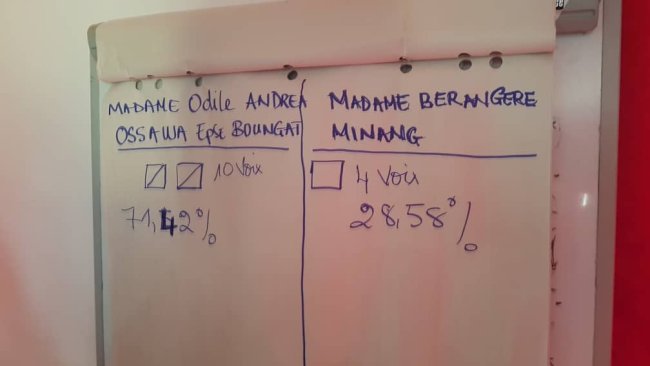 MADAME Odile ANDREA
OSSAWA Epse BOUNGAT
10 Voix
71,42%
MADAME BERANGERE
MINANG
4 Voix
28,58%